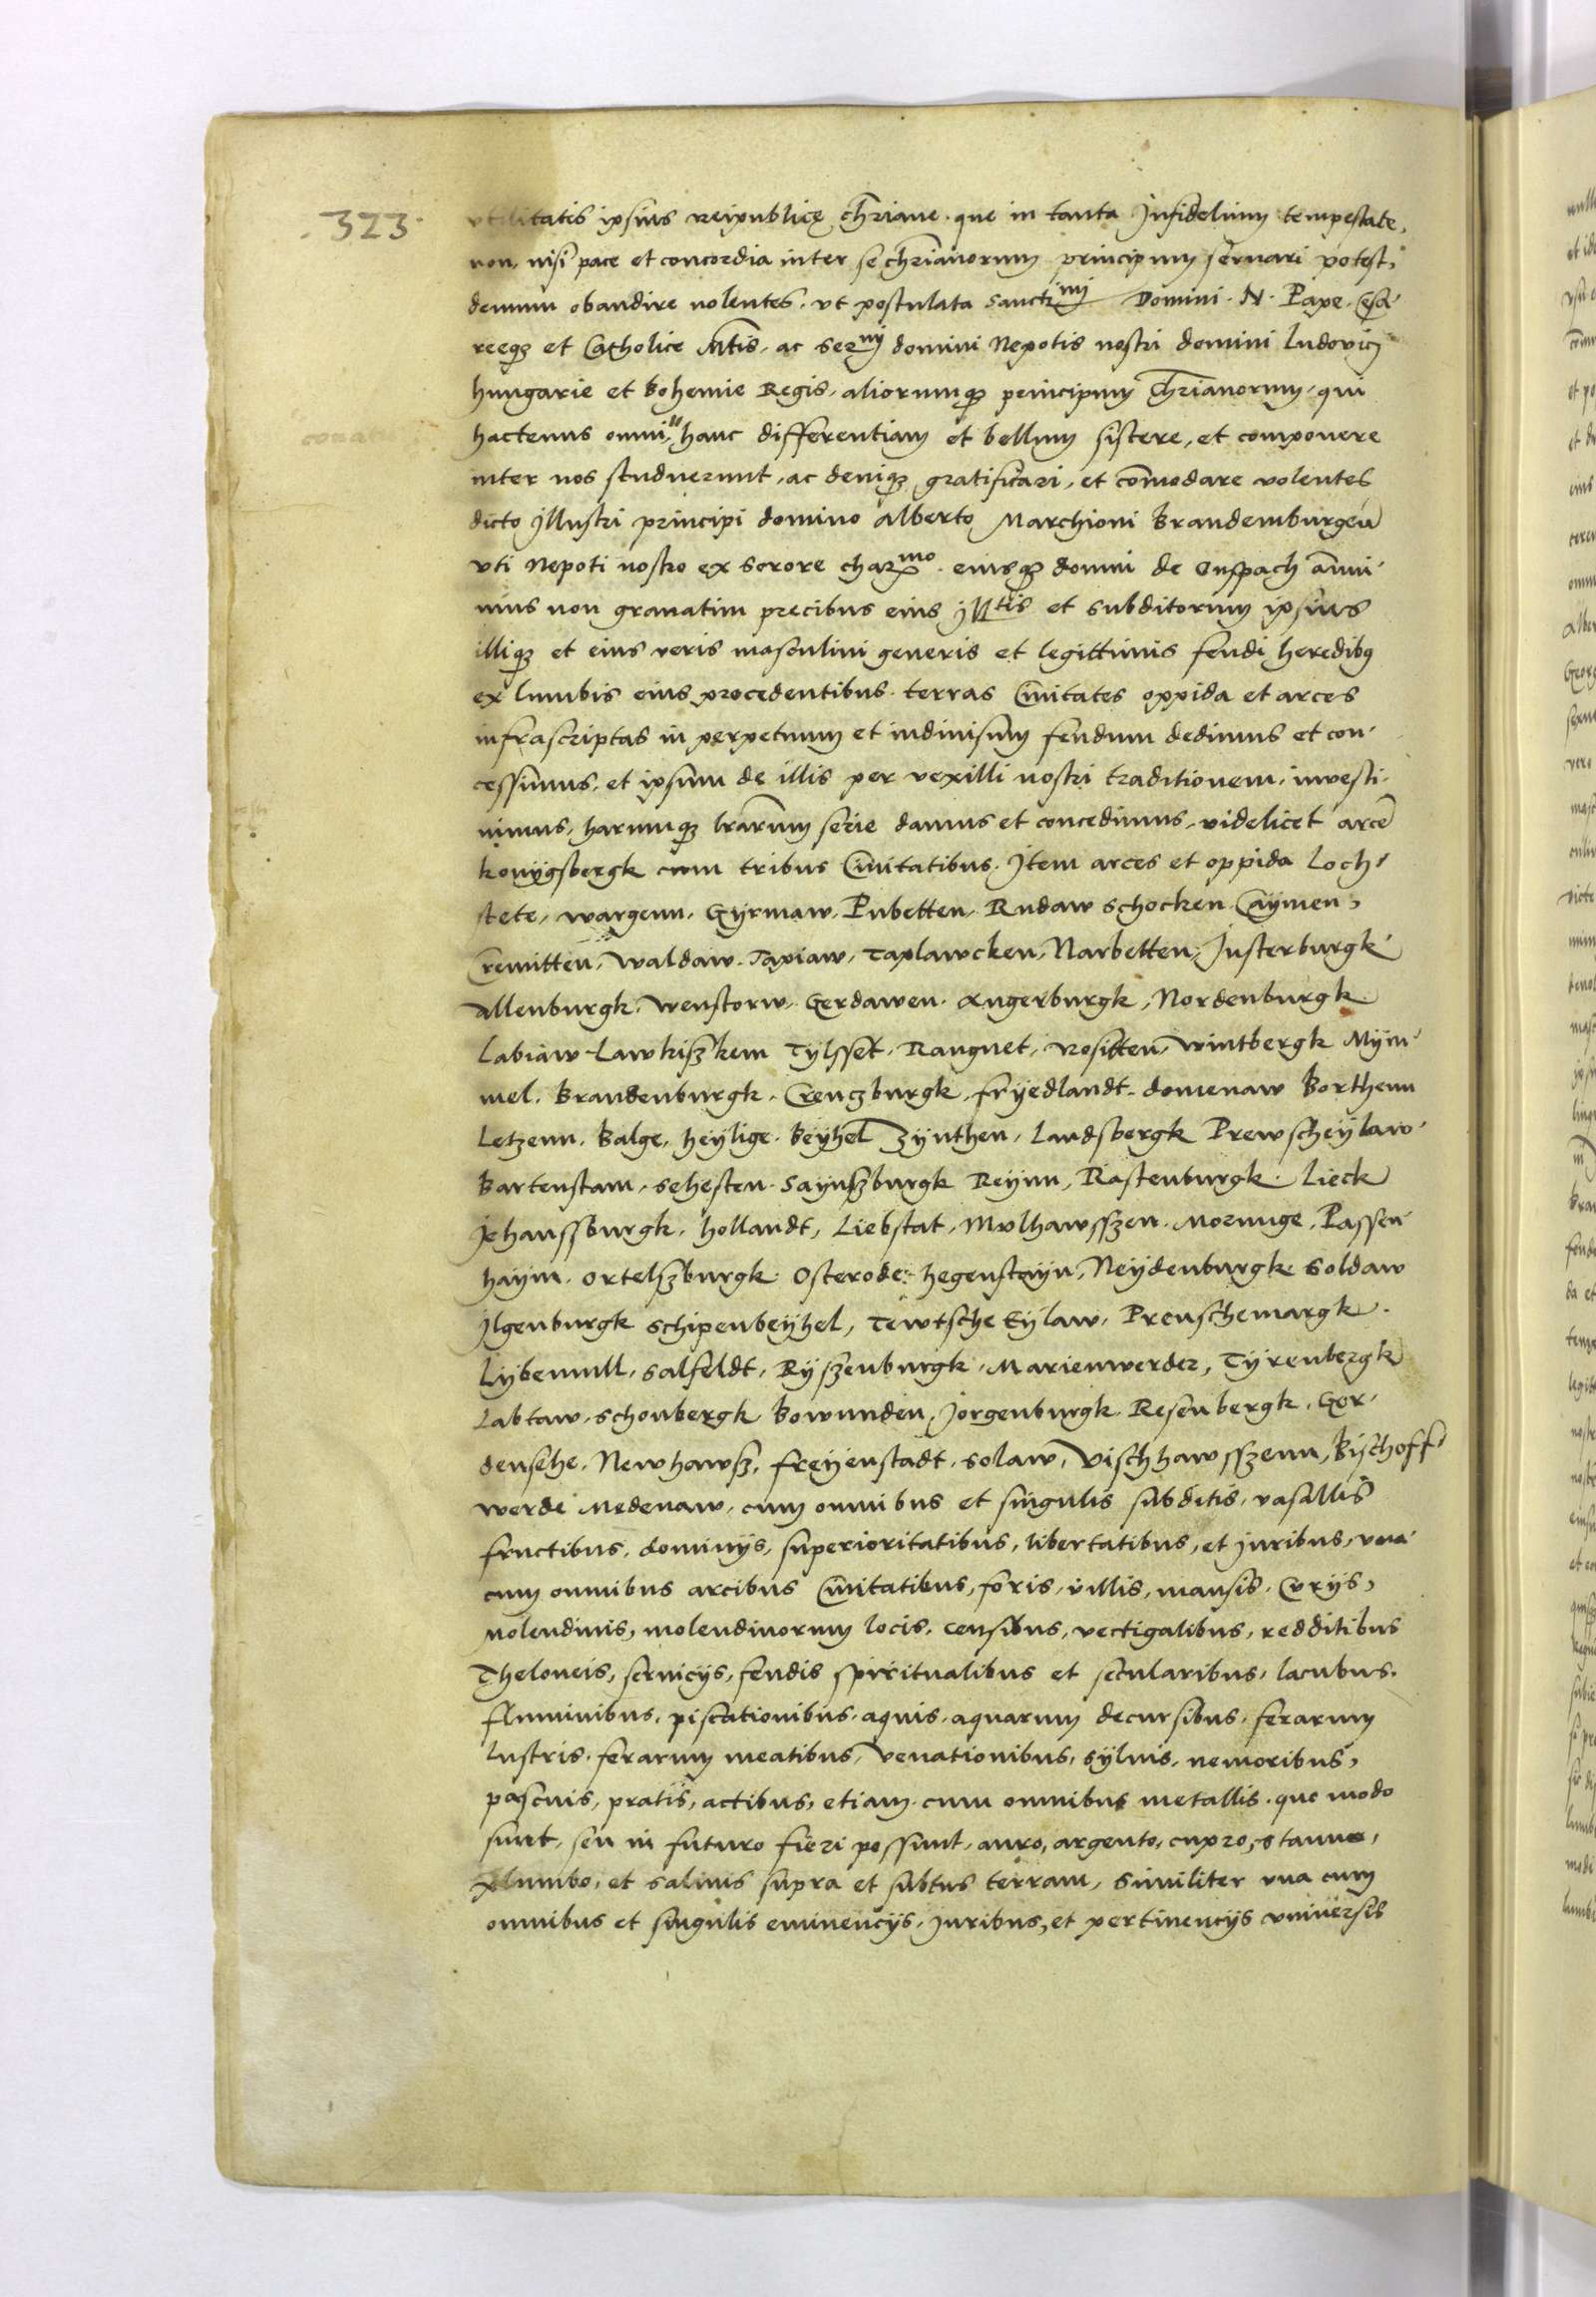 323
vtilitatis ipsius reipublicę chr̄iane. que in tanta Jnfidelium tempestate,
non, nisi pace et concordia inter se chr̄ianorum principum seruari potest,
demum obaudire nolentes. vt postulata Sanctimi Domini. N. Pape. Cesa-
reeqꝫ et Catholice Mt̄is, ac Sernj domini Nepotis nostri domini Ludovicj
hungarie et Bohemie Regis, aliorumqꝫ principum Chr̄ianorum, qui
hactenus omni" hanc differentiam et bellum sistere, et componere
inter nos studuerunt, ac deniqꝫ gratificari, et com̄odare volentes
dicto Jllustri principi domino Alberto Marchioni Brandemburgeń
vti Nepoti nostro ex Sorore charmo. eiusqꝫ domui de Onspach an̄ui-
mus non grauatim precibus eius Jlltis et Subditorum ipsius
illiqꝫ et eius veris masculini generis et legittimis feudi heredibꝰ
ex lumbis eius procedentibus. terras Ciuitates oppida et arces
infrascriptas in perpetuum et indiuisum feudum dedimus et con-
cessimus, et ipsum de illis per vexilli nostri traditionem, investi-
uimus, harumqꝫ lr̄arum serie damus et concedimus, videlicet arcē
konÿgsbergk cum tribus Ciuitatibus. Jtem arces et oppida Loch-
stete, wargenn, Gyrmaw, Pubetten, Rudaw Schocken Caÿmen,
Cremitten, waldaw. Tapiaw, Taplawcken, Narbetten, Justerburgk
Allenburgk, wenstorw, Gerdawen. Angerburgk, Nordenburgk
Labiaw Lawkiszkem Tÿlsset, Rangnet, Rositten, wintbergk Mÿm-
mel. Brandenburgk, Creuczburgk, frÿedlandt, domenaw Borthenn
Letzenn. Balge, heÿlige. Beÿhel Zÿnthen, Landsbergk Prewscheÿlaw
Bartenstam, Sehesten. Saÿnszburgk Reÿnn, Rastenburgk. Lieck
Jehanssburgk, hollandt, Liebstat, Mvlhawsszen, Morunge, Passen-
haÿm. Ortelszburgk. Osterode. hegenstaÿn, Neÿdenburgk Soldaw
Jlgenburgk Schipenbeÿhel, Tewtsche Eÿlaw, Preuschemargk.
Lÿbemull, Salfeldt, Rÿszenburgk, Marienwerder, Tÿrenbergk
Labtaw, Schonbergk Bowunden, Jorgenburgk. Resenbergk. Ger-
densehe. Newhawsz, freÿenstadt, Solaw, Vischhawsszenn, Bischoff-
werde Medenaw, cum omnibus et singulis subditis, vasallis
fructibus, dominÿs, superioritatibus, libertatibus, et juribus, vna
cum omnibus arcibus Ciuitatibus, foris, villis, mansis. Curÿs,
Molendinis, molendinorum locis, censibus, vectigalibus, redditibus
Theloneis, seruicÿs, feudis spiritualibus et secularibus, lacubus.
fluminibus, piscationibus. aquis. aquarum decursibus. ferarum
Lustris. ferarum meatibus, venationibus, sÿluis, nemoribus,
pascuis, pratis, actibus, etiam cum omnibus metallis. que modo
sunt, seu in futuro fieri possunt, auro, argento, cupro, stanno,
plumbo, et salinis supra et subtus terram, Similiter vna cum
omnibus et singulis eminencÿs, juribus, et pertinencÿs vniuersis